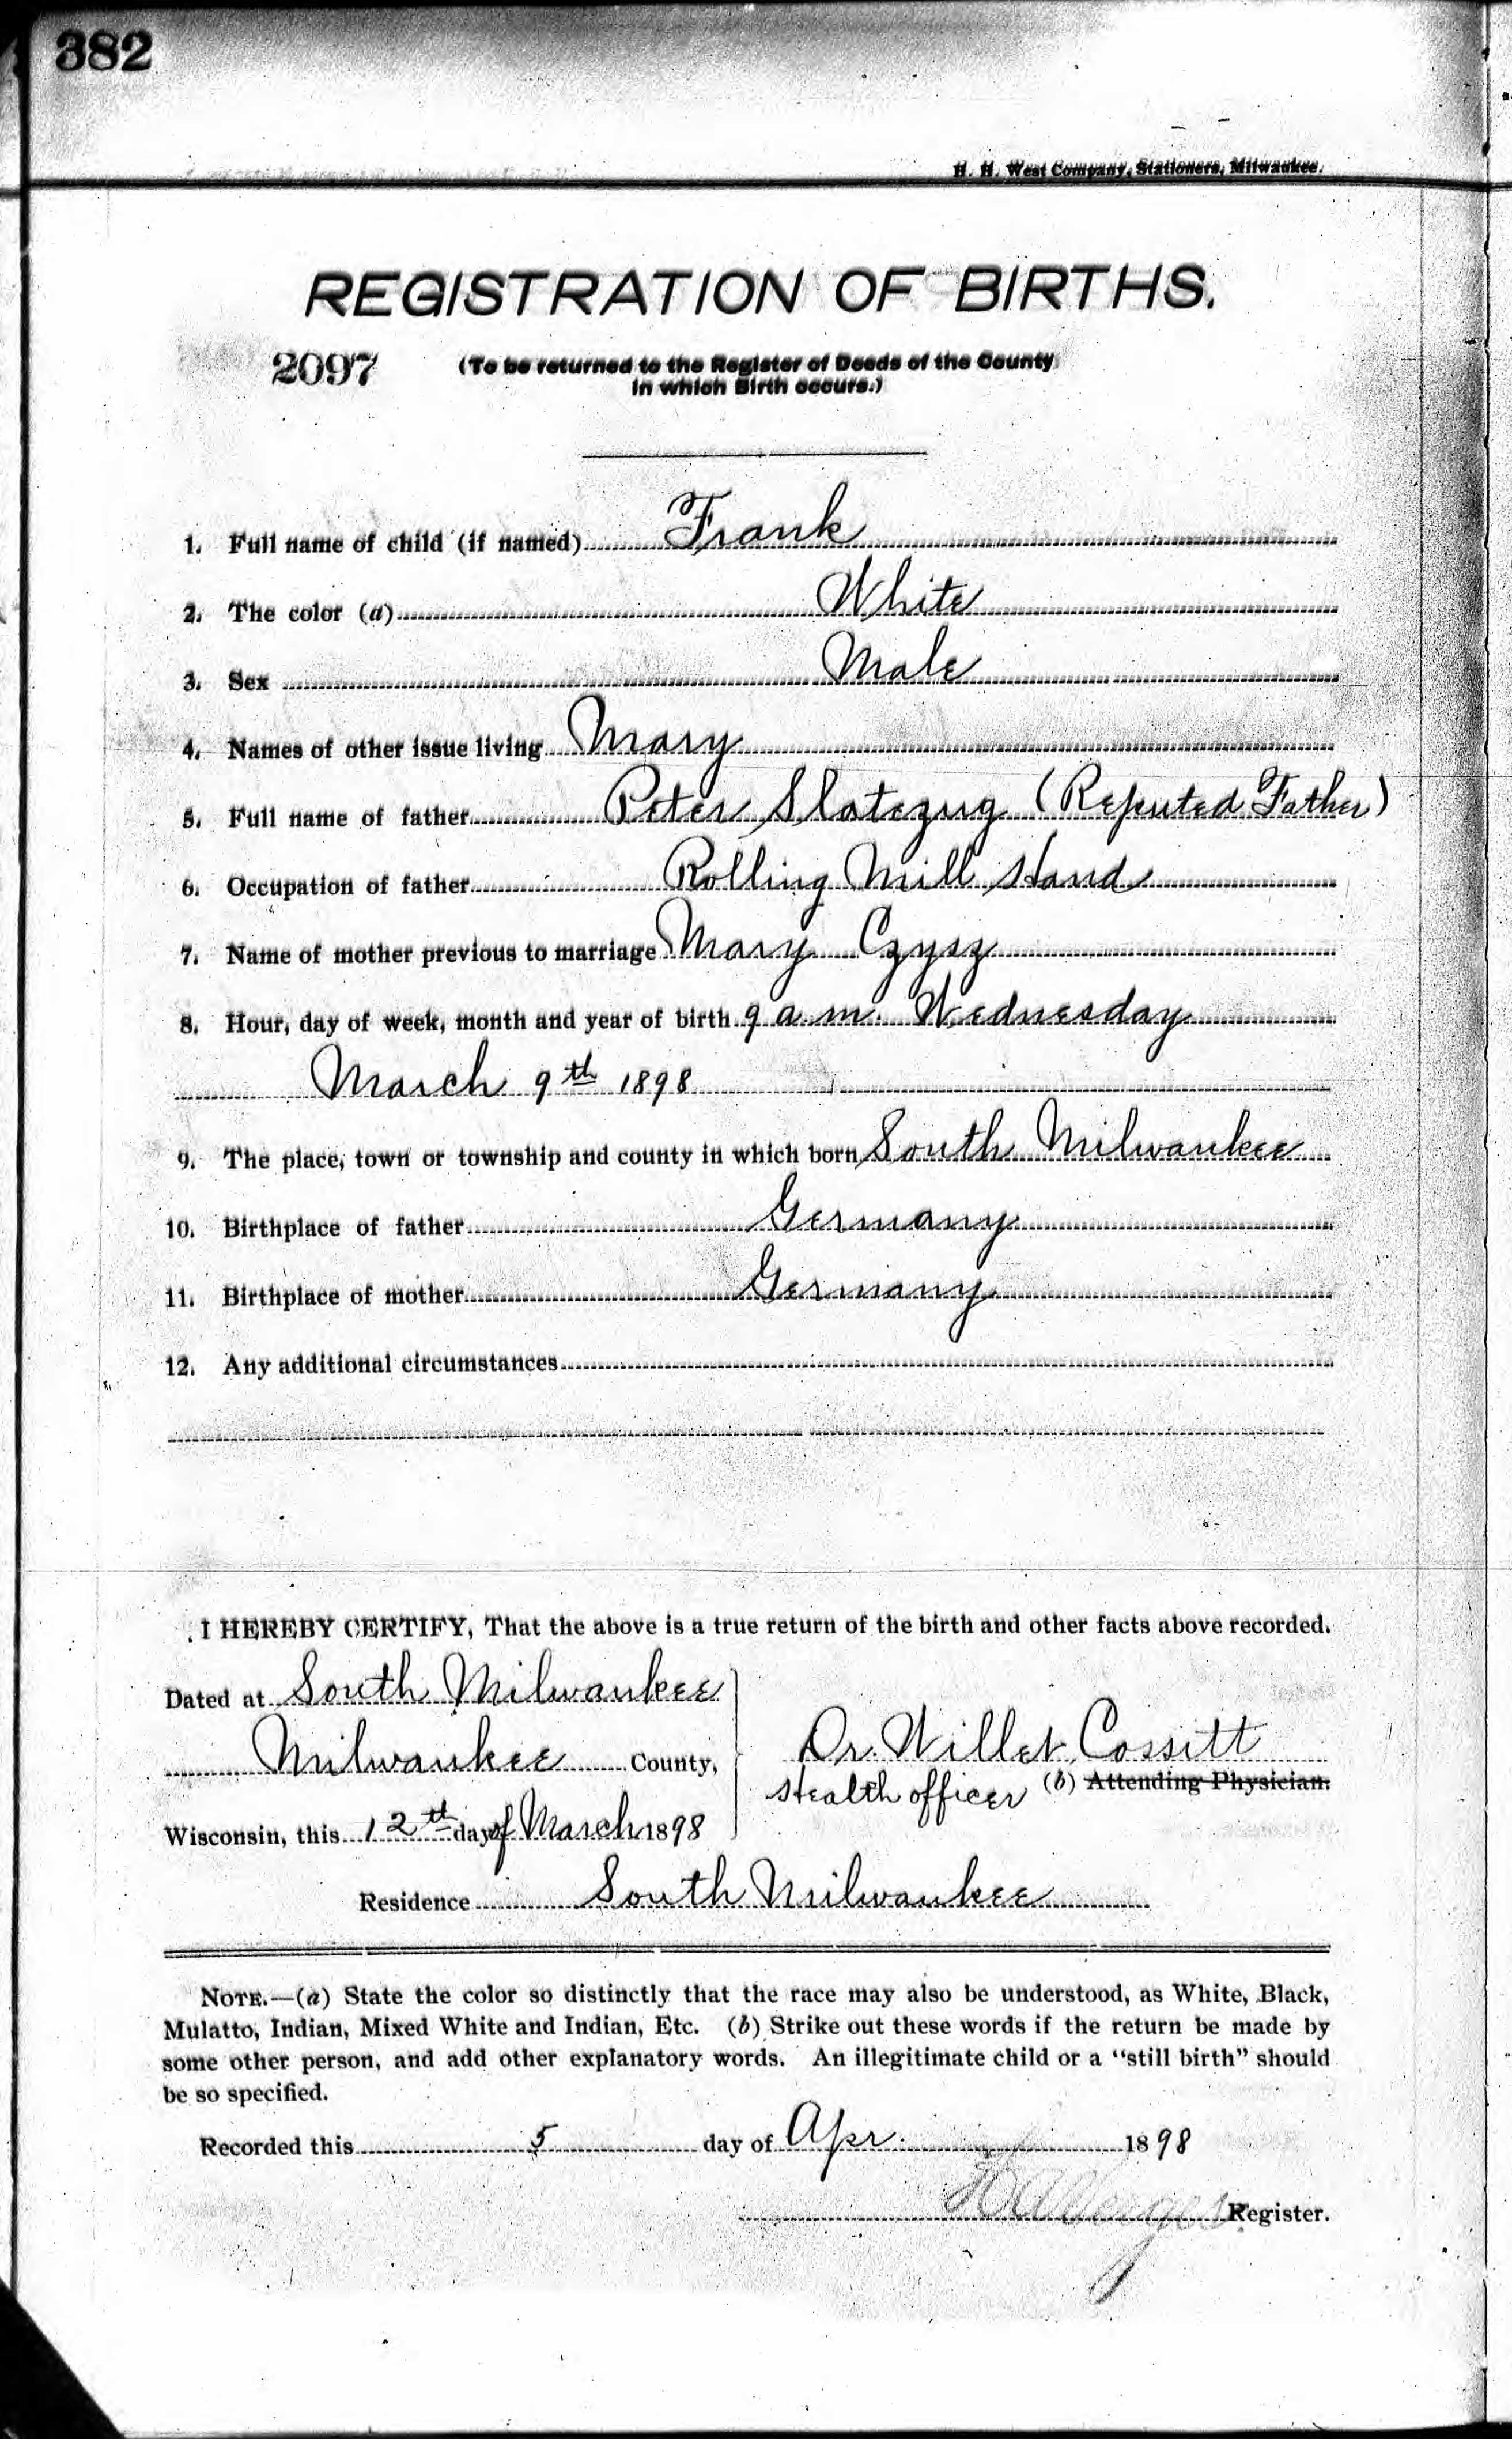 382
H. H. West Company, Stationers, Milwaukee.
REGISTRATION OF BIRTHS.
2097 (To be returned to the Register of Deeds of the County
in which Birth occurs.)
1. Full name of child (if named) Frank
2. The color (a) White
3. Sex Male
4. Names of other issue living Mary
5. Full name of father Peter Slatezug (Reputed Father)
6. Occupation of father Rolling Mill Hand
7. Name of mother previous to marriage Mary Czysz
8. Hour, day of week, month and year of birth 9 a.m. Wednesday
March 9th 1898
9. The place, town or township and county in which born South Milwaukee
10. Birthplace of father Germany
11. Birthplace of mother Germany
12. Any additional circumstances
I HEREBY CERTIFY, That the above is a true return of the birth and other facts above recorded.
Dated at South Milwaukee
Milwaukee County,
Dr. Willet Cossitt
Health officer (b) Attending Physician.
Wisconsin, this 12th day of March 1898
Residence South Milwaukee
NOTE.—(a) State the color so distinctly that the race may also be understood, as White, Black,
Mulatto, Indian, Mixed White and Indian, Etc. (b) Strike out these words if the return be made by
some other person, and add other explanatory words. An illegitimate child or a “still birth” should
be so specified.
Recorded this 5 day of Apr. 1898
Register.